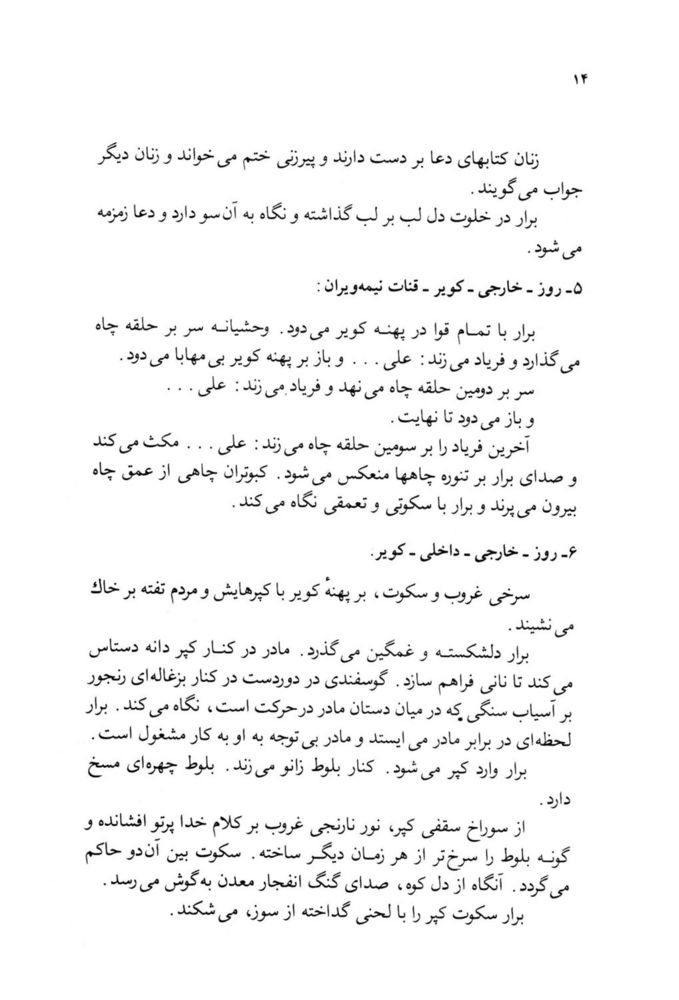 ۱۴
زنان کتابهای دعا بر دست دارند و پیرزنی ختم می‌خواند و زنان دیگر
جواب می‌گویند.
برار در خلوت دل لب بر لب گذاشته و نگاه به آن‌سو دارد و دعا زمزمه
می‌شود.
۵ـ روز ـ خارجی ـ کویر ـ قنات نیمه‌ویران:
برار با تمـام قوا در پهنـه کویر می‌دود. وحشیانـه سر بر حلقه چاه
می‌گذارد و فریاد می‌زند: علی... و باز بر پهنه کویر بی‌مهابا می‌دود.
سر بر دومین حلقه چاه می‌نهد و فریاد می‌زند: علی...
و باز می‌دود تا نهایت.
آخرین فریاد را بر سومین حلقه چاه می‌زند: علی... مکث می‌کند
و صدای برار بر تنوره چاهها منعکس می‌شود. کبوتران چاهی از عمق چاه
بیرون می‌پرند و برار با سکوتی و تعمقی نگاه می‌کند.
۶ـ روز ـ خارجی ـ داخلی ـ کویر.
سرخی غروب و سکوت، بر پهنهٔ کویر با کپرهایش و مردم تفته بر خاك
می‌نشیند.
برار دلشکستـه و غمگین می‌گذرد. مادر در کنـار کپر دانه دستاس
می‌کند تا نانی فراهم سازد. گوسفندی در دوردست در کنار بزغاله‌ای رنجور
بر آسیاب سنگی که در میان دستان مادر درحرکت است، نگاه می‌کند. برار
لحظه‌ای در برابر مادر می‌ایستد و مادر بی‌توجه به او به کار مشغول است.
برار وارد کپر می‌شود. کنار بلوط زانو می‌زند. بلوط چهره‌ای مسخ
دارد.
از سوراخ سقفی کپر، نور نارنجی غروب بر کلام خدا پرتو افشانده و
گونـه بلوط را سرخ‌تر از هر زمان دیگـر ساخته. سکوت بین آن‌دو حاکم
می‌گردد. آنگاه از دل کوه، صدای گنگ انفجار معدن به‌گوش می‌رسد.
برار سکوت کپر را با لحنی گداخته از سوز، می‌شکند.